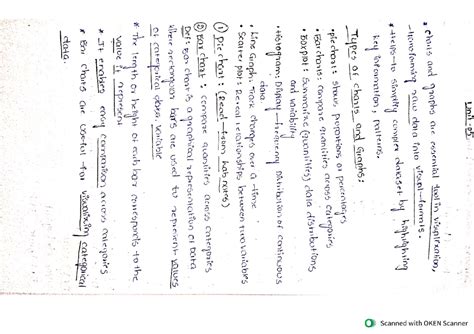 Unit-05
* charts and graphs are essential tool in visualization,
transforming raw data into visual-formats.
* Helps to simplify complex dataset by highlighting
key information, patterns.
Types of charts and Graphs:
• piechart: shows proportions or percentages
• Barcharts: compare quantities across categories
• Boxplot: Summarize (quantities) data distributions
and variability
• Histogram: Display frequency distribution of continuous
data.
• Line Graph: Track changes over a time
• Scatterplot: Reveal relationships between two variables
① Piechart: (Read from notes)
② Bar chart: compare quantities across categories
Def: Bar chart is a graphical representation of data
where rectangular bars are used to represent values
of categorical data, variable
* The length or height of each bar corresponds to the
value it represent
* It enables easy comparison across categories
* Bar charts are useful for visualizing categorical
data.
Scanned with OKEN Scanner